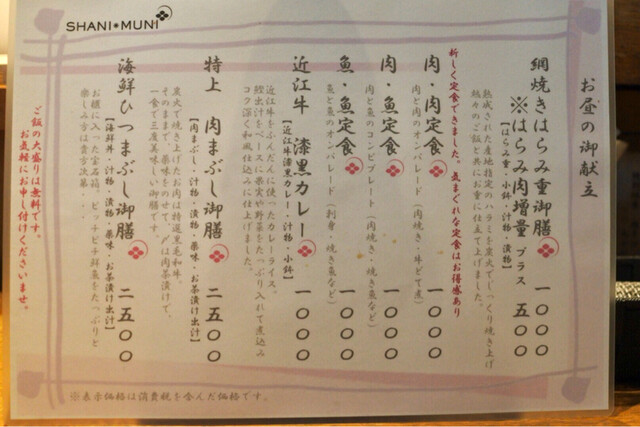 SHANI✱MUNI
お昼の御献立
網焼きはらみ重御膳 一〇〇〇
※はらみ肉増量 プラス 五〇〇
【はらみ重・小鉢・汁物・漬物】
熟成された産地指定のハラミを炭火でじっくり焼き上げ
艶々のご飯と共にお重に仕立て上げました。
新しく定食できました。気まぐれな定食はお得感あり
肉・肉定食 一〇〇〇
肉と肉のオンパレード(肉焼き・牛どて煮)
肉・魚定食 一〇〇〇
肉と魚のコンビプレート(肉焼き・焼き魚など)
魚・魚定食 一〇〇〇
魚と魚のオンパレード(刺身・焼き魚など)
近江牛 漆黒カレー 一〇〇〇
【近江牛漆黒カレー・汁物・小鉢】
近江牛をふんだんに使ったカレーライス。
鰹出汁をベースに果実や野菜をたっぷり入れて煮込み
コク深く和風仕込みに仕上げました。
特上 肉まぶし御膳 二五〇〇
【肉まぶし・汁物・漬物・薬味・お茶漬け出汁】
炭火で焼き上げたお肉は特選黒毛和牛。
そのままで、薬味をのせて、〆は肉茶漬けで、
一食で三度美味しい御膳です。
海鮮ひつまぶし御膳 二五〇〇
【海鮮丼・汁物・漬物・薬味・お茶漬け出汁】
お櫃に入った宝石箱。ピッチピチ鮮魚をたっぷりと
楽しみ方は貴方次第・・・
ご飯の大盛りは無料です。
お気軽にお申し付けくださいませ。
※表示価格は消費税を含んだ価格です。